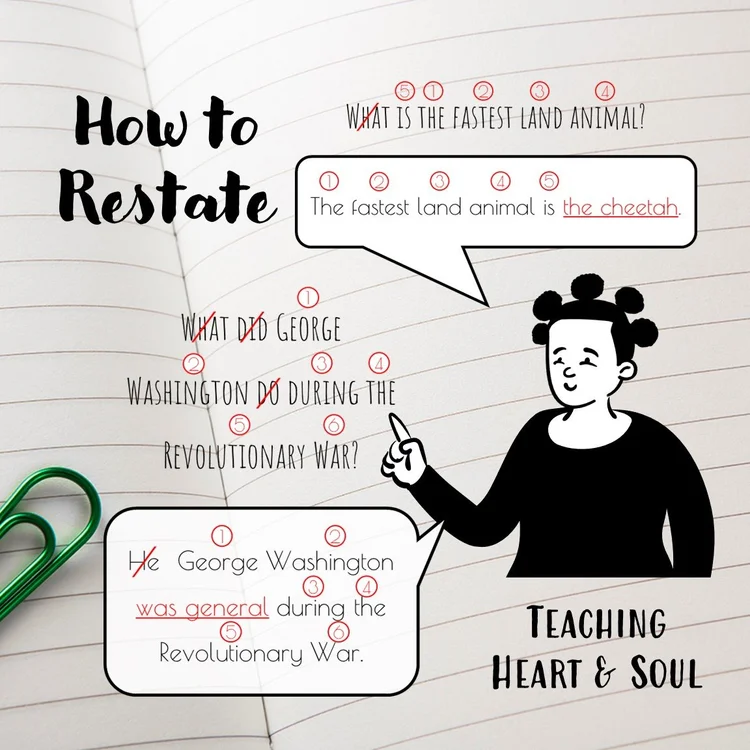 How to
Restate
5 1 2 3 4
What is the fastest land animal?
1 2 3 4 5
The fastest land animal is the cheetah.
1
What did George
2 3 4
Washington do during the
5 6
Revolutionary War?
1 2
He George Washington
3 4
was general during the
5 6
Revolutionary War.
Teaching
Heart & Soul